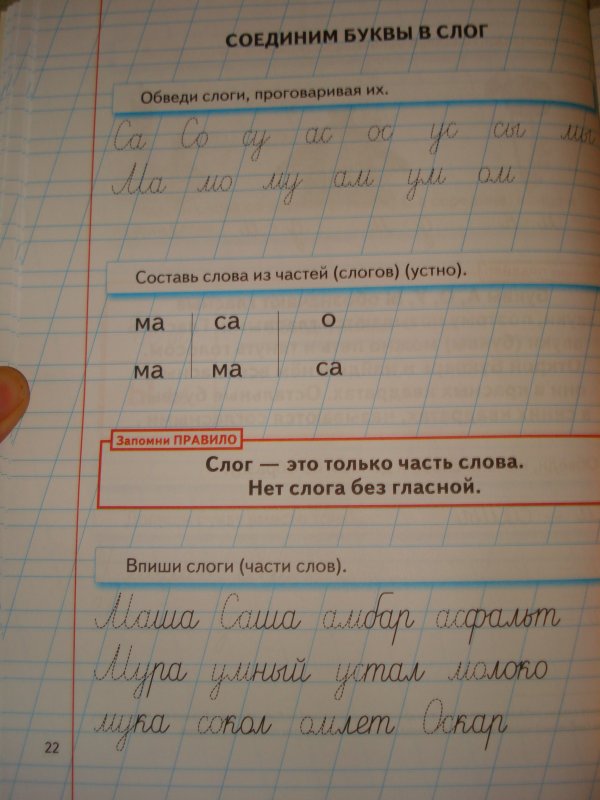 СОЕДИНИМ БУКВЫ В СЛОГ
Обведи слоги, проговаривая их.
Са Со су ас ос ус сы мы
Ма мо му ам ум ом
Составь слова из частей (слогов) (устно).
ма са о
ма ма са
Запомни ПРАВИЛО
Слог — это только часть слова.
Нет слога без гласной.
Впиши слоги (части слов).
Маша Саша амбар асфальт
Мура умный устал молоко
мука сокол омлет Оскар
22